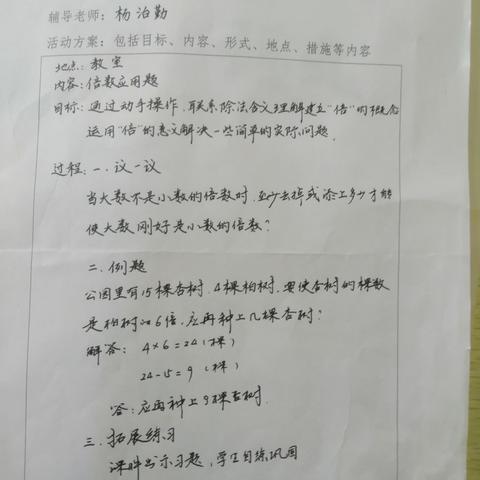 辅导老师：杨泊勤
活动方案：包括目标、内容、形式、地点、措施等内容
地点：教室
内容：倍数应用题
目标：通过动手操作，联系除法含义理解建立“倍”的概念
运用“倍”的意义解决一些简单的实际问题。
过程：一．议一议
当大数不是小数的倍数时，至少去掉或添上多少才能
使大数刚好是小数的倍数？
二．例题
公园里有15棵杏树，4棵柏树，要使杏树的棵数
是柏树的6倍，应再种上几棵杏树？
解答：4×6=24（棵）
24-15=9（棵）
答：应再种上9棵杏树．
三．拓展练习
课件出示习题，学生自练巩固